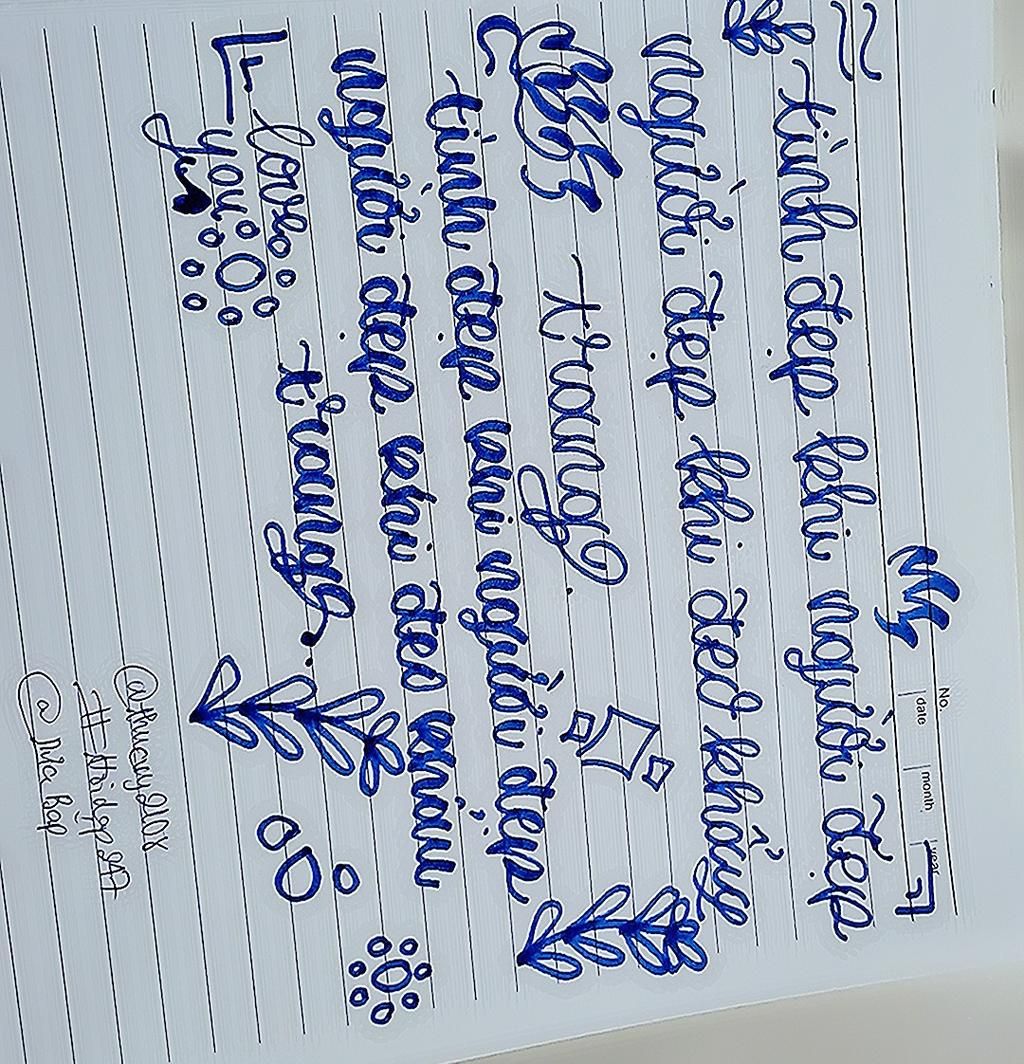 No.
date month year
tình đẹp khi người đẹp
người đẹp khi đeo khẩu
trang
tình đẹp khi người đẹp
người đẹp khi đeo khẩu
trang.
love
you
@thuony2108
#Hoidap247